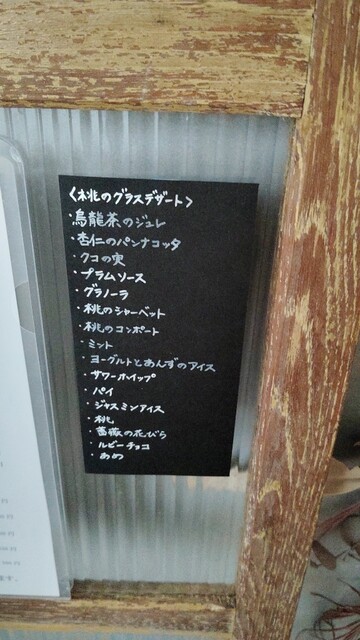 〈桃のグラスデザート〉
・烏龍茶のジュレ
・杏仁のパンナコッタ
・クコの実
・プラムソース
・グラノーラ
・桃のシャーベット
・桃のコンポート
・ミント
・ヨーグルトとあんずのアイス
・サワーホイップ
・パイ
・ジャスミンアイス
・桃
・薔薇の花びら
・ルビーチョコ
・あめ